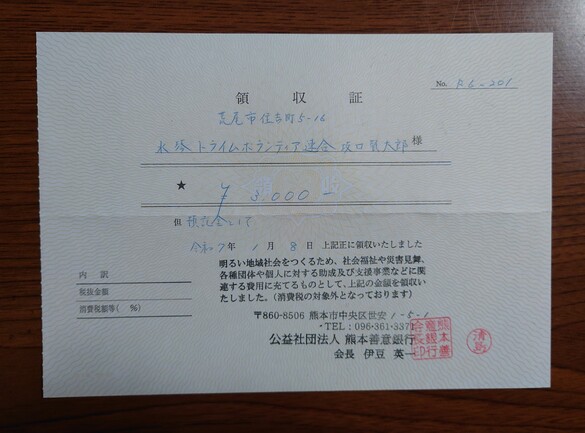 No. R6-201
領収証
荒尾市住吉町5-16
水琴ドライムボランティア連合 坂口賢太郎 様
★ ¥3,000-
但 預託金として
令和7年1月8日 上記正に領収いたしました
明るい地域社会をつくるため、社会福祉や災害見舞、
各種団体や個人に対する助成及び支援事業などに関
連する費用に充てるものとして、上記の金額を領収い
たしました。(消費税の対象外となっております)
内訳
税抜金額
消費税額等( %)
〒860-8506 熊本市中央区世安1-5-1
・TEL:096-361-3371
公益社団法人 熊本善意銀行
会長 伊豆 英一
熊本善意銀行会長印
清島